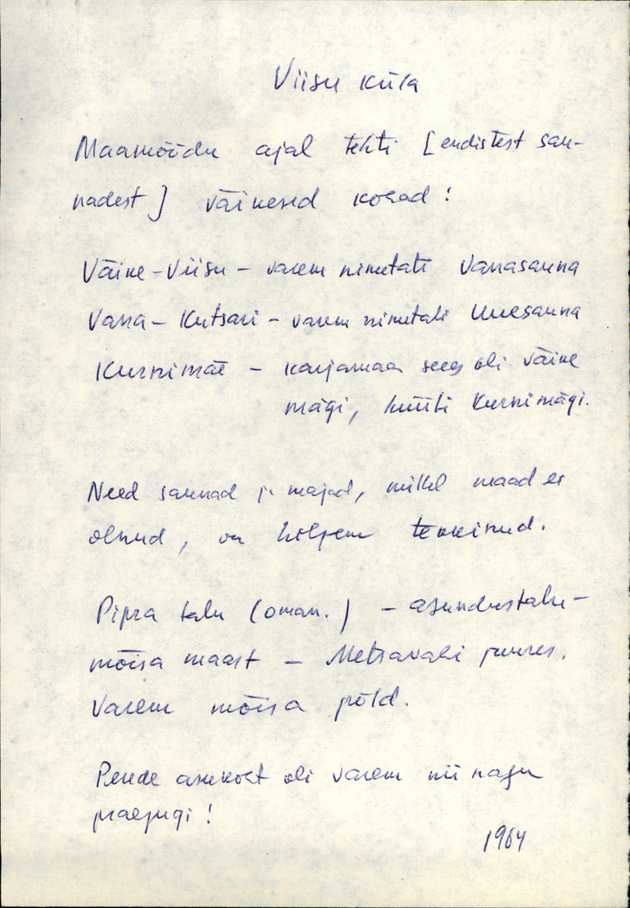 Viisu küla
Maamõõdu ajal tehti [endistest sau-
nadest] väikesed kohad!
Väike-Viisu - varem nimetati Vanasauna
Vana-Kutsari - varem nimetati Uuesauna
Kurnimäe - karjamaa sees oli väike
mägi, hüüti Kurnimägi.
Need saunad ja majad, millel maad ei
olnud, on hiljem tekkinud.
Pipra talu (oman.) - asundustalu -
mõisa maast - Metsavahi juures.
Varem mõisa põld.
Perede asukoht oli varem nii nagu
praegugi!
1964